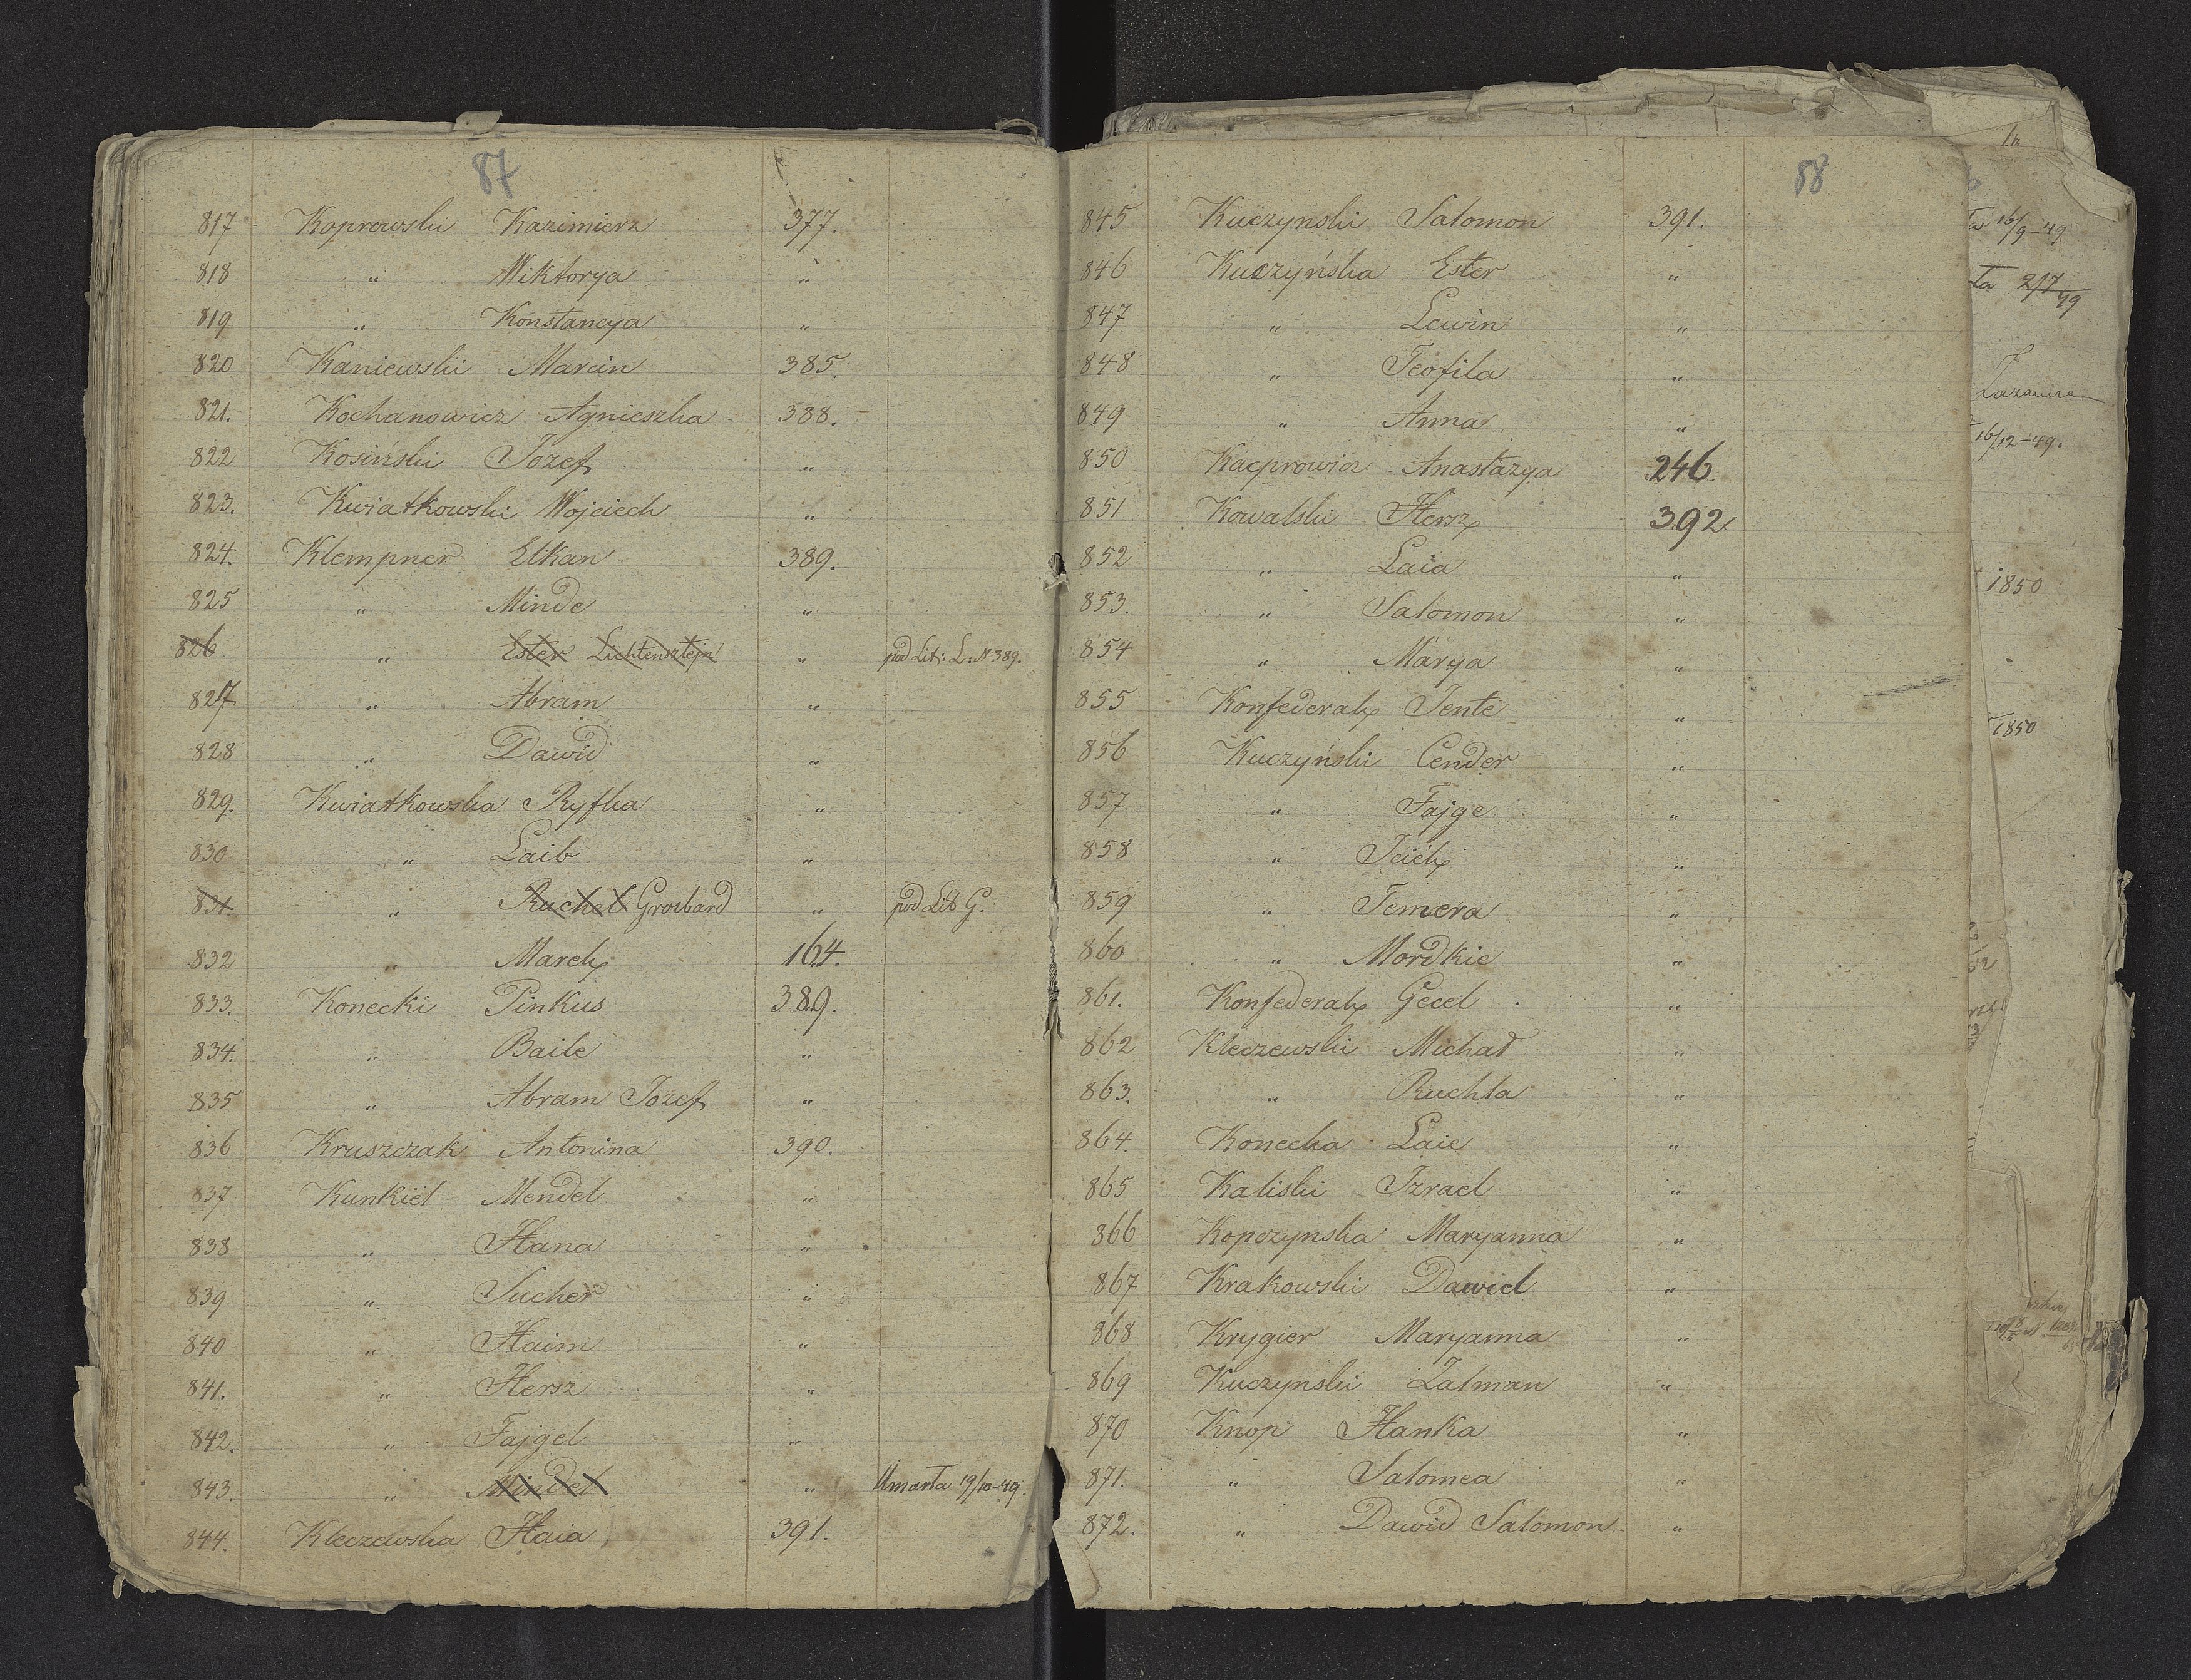 87
817 Koprowski Kazimierz 377.
818 " Wiktorya "
819 " Konstancya "
820 Kaniewski Marcin 385.
821. Kochanowicz Agnieszka 388.
822 Kosiński Jozef "
823. Kwiatkowski Wojciech "
824. Klempner Elkan 389.
825 " Minde "
826 " Ester Lichtensztejn " pod Lit: L: N 389.
827 " Abram "
828 " Dawid "
829. Kwiatkowska Ryfka "
830 " Laib "
831 " Ruchel Grosbard " pod Lit G.
832 " Marek 164.
833. Konecki Pinkus 389.
834. " Baile "
835 " Abram Jozef "
836 Kruszczak Antonina 390.
837 Kunkiel Mendel "
838 " Hana "
839 " Sucher "
840 " Haim "
841. " Hersz "
842. " Fajgel "
843. " Mindel " Umarła 19/10-49.
844. Kleczewska Haia 391.
88
845 Kuczynski Salomon 391.
846 Kuczyńska Ester "
847 " Lewin "
848 " Teofila "
849 " Anna "
850 Kacprowicz Anastazya 246.
851 Kowalski Hersz 392.
852 " Laia "
853. " Salomon "
854 " Marya "
855 Konfederak Tente "
856 Kuczyński Cender "
857 " Fajge "
858 " Icik "
859 " Temera "
860 " Mordkie "
861. Konfederak Gecel "
862 Kleczewski Michał "
863. " Ruchla "
864. Konecka Laie "
865 Kaliski Izrael "
866 Kopczynska Maryanna "
867 Krakowski Dawid "
868 Krygier Maryanna "
869 Kuczynski Zalman "
870 Knop Hanka "
871. " Salomea "
872. " Dawid Salomon "
16/9-49
ła 2/7 49
16/12-49.
1850
1850